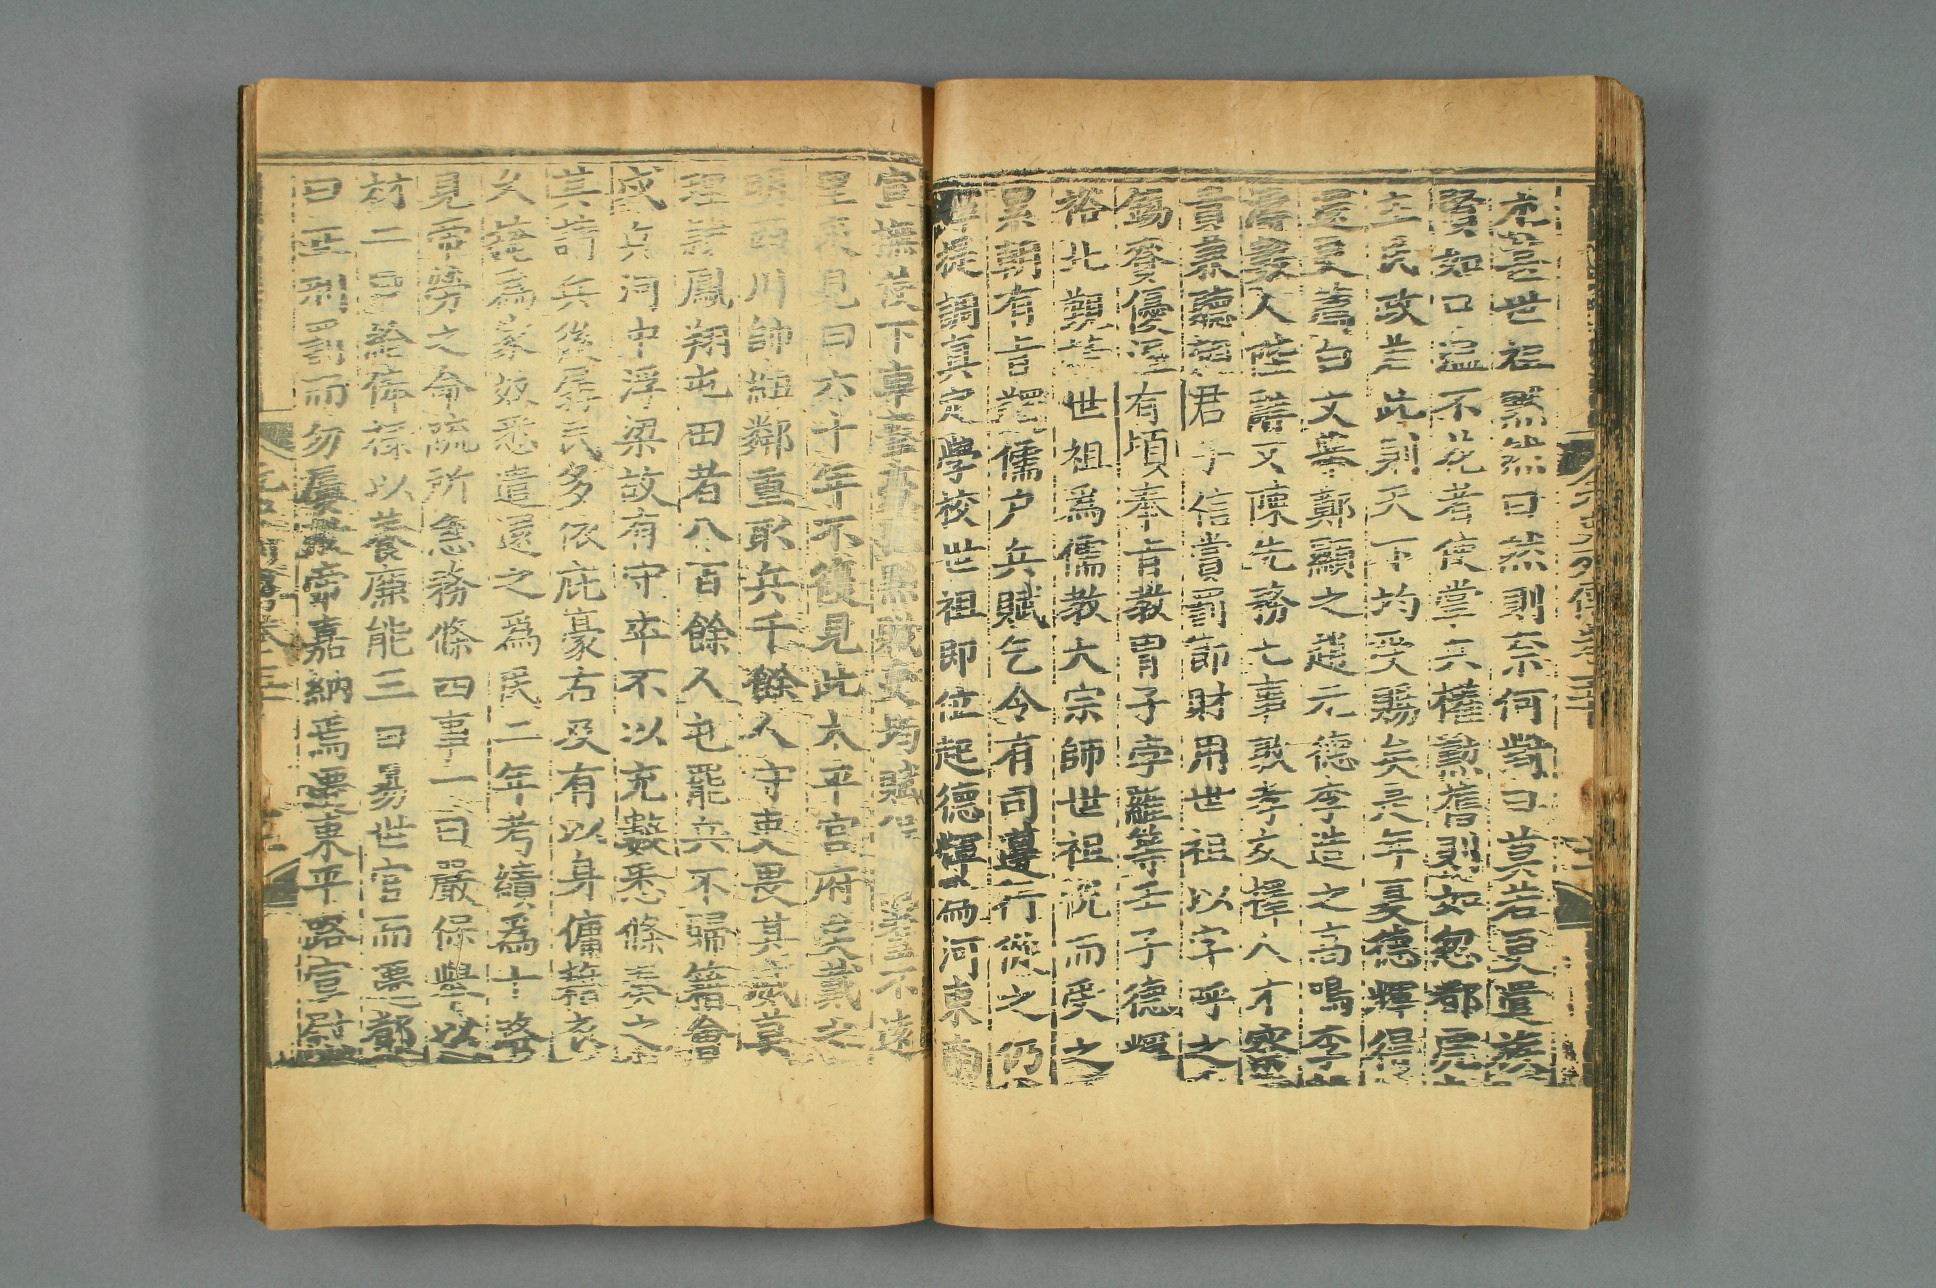 尤甚世祖默然曰然則奈何對曰莫若更遣族
賢如口溫不花者使掌兵權勲舊則如忽都虎
主民政若此則天下均受賜矣是年夏德輝得
還更薦白文舉鄭顯之趙元德李造之高鳴李
濤數人陛辭又陳先務七事敦孝友擇人才察
貴兼聽親君子信賞罰節財用世祖以字呼之
錫賚優渥有頃奉旨教胄子孛羅等壬子德輝
裕北覲世祖爲儒教大宗師世祖悅而受之
累朝有旨蠲儒户兵賦乞令有司遵行從之仍
輝提調真定學校世祖即位起德輝爲河東南
宣撫使下車擊豪強黜贓吏均賦耆耋不遠
里來見曰六十年不復見此太平官府矣戴之
西川帥紐鄰重取兵千餘人守吏畏其威莫
理隸鳳翔屯田者八百餘人屯罷兵不歸籍會
戍兵河中浮梁故有守卒不以充數悉條奏之
其請兵後孱民多依庇豪右及有以身傭藉衣
久掩爲家奴悉遣還之爲民二年考績爲十路
見帝勞之命疏所急務條四事一曰嚴保舉以
材二曰給俸祿以養廉能三曰易世官而遷都
曰正刑罰而勿屢赦帝嘉納焉遷東平路宣慰